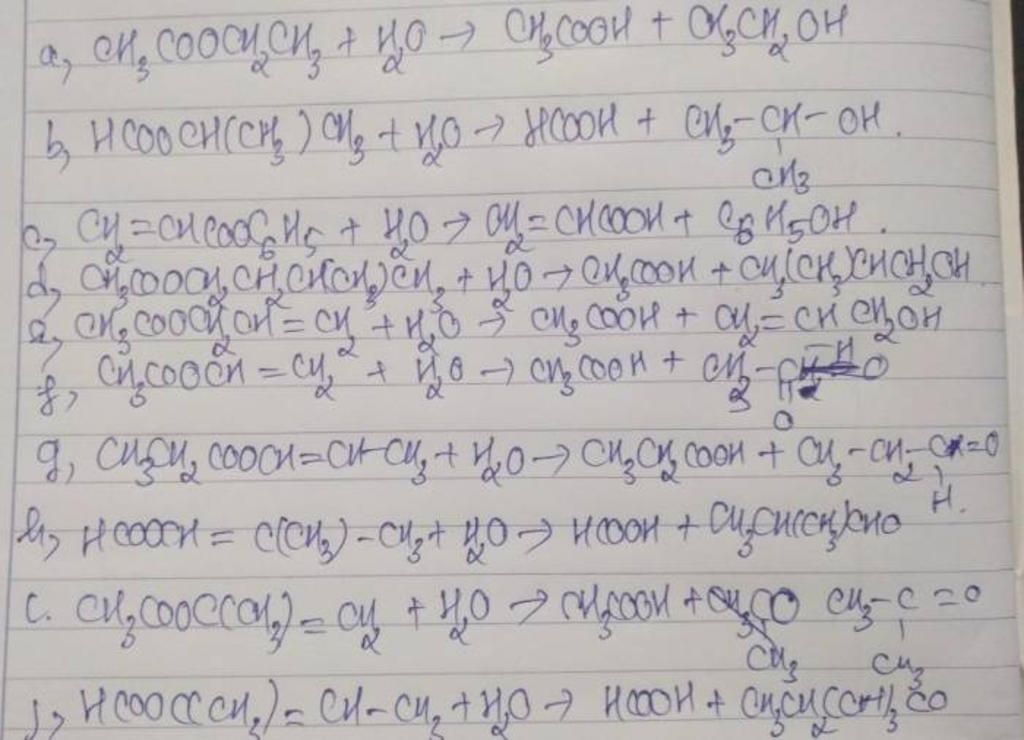 a, CH₃COOCH₂CH₃ + H₂O → CH₃COOH + CH₃CH₂OH
b, HCOOCH(CH₃)CH₃ + H₂O → HCOOH + CH₃-CH-OH.
CH₃
c, CH₂=CHCOOC₆H₅ + H₂O → CH₂=CHCOOH + C₆H₅OH.
d, CH₃COOCH₂CH₂CH(CH₃)CH₃ + H₂O → CH₃COOH + CH₃(CH₃)CHCH₂OH
e, CH₃COOCH₂CH=CH₂ + H₂O → CH₃COOH + CH₂=CHCH₂OH
f, CH₃COOCH=CH₂ + H₂O → CH₃COOH + CH₃-C-H
O
g, CH₃CH₂COOCH=CH-CH₃ + H₂O → CH₃CH₂COOH + CH₃-CH₂-C=O
H.
h, HCOOCH=C(CH₃)-CH₃ + H₂O → HCOOH + CH₃CH(CH₃)CHO
c. CH₃COOC(CH₃)=CH₂ + H₂O → CH₃COOH + CH₃-C=O
CH₃
j, HCOOC(CH₃)=CH-CH₃ + H₂O → HCOOH + CH₃CH₂(CH₃)CO